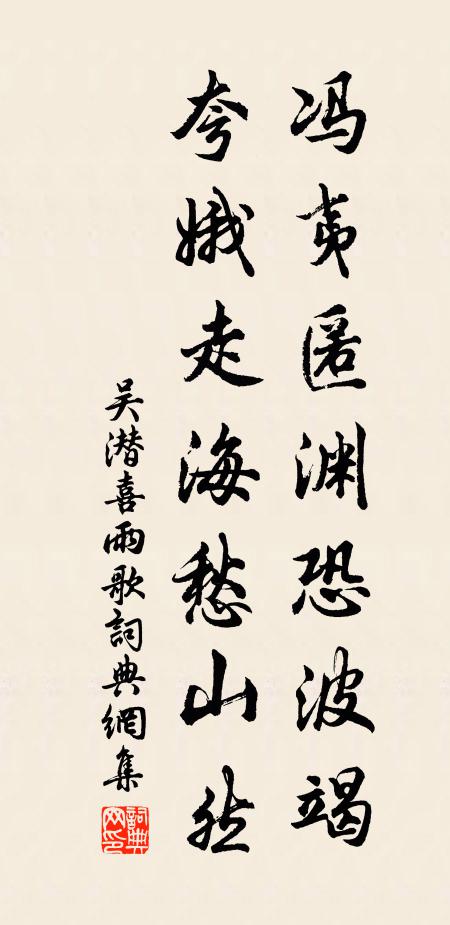 冯夷匿渊恐波竭
夸娥走海愁山然
吴潜喜雨歌詞典網集
詞典网印